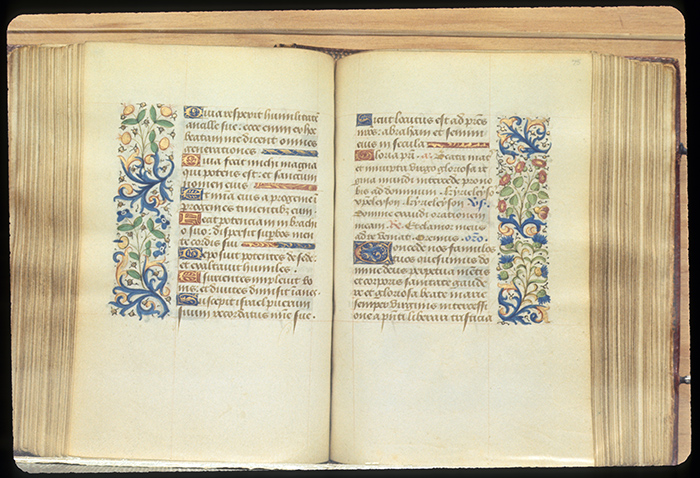 Quia respexit humilitatē
ancille sue: ecce enim ex hoc
beatam me dicent omnes
generationes
Quia fecit michi magna
qui potens est: et sanctum
nomen eius
Et mīa eius a progenie ī
progenies timentib; eum
Fecit potenciam in brachi
o suo: dispersit supbos men
te cordis sui
Deposuit potentes de sede
et exaltavit humiles.
Esurientes implevit bo
nis: et divites dimisit īanes.
Suscepit israel puerum
suum recordatus mīe sue.
Sicut locutus est ad pr̄es
nr̄os: abraham et semini
eius in secula
Gloria pr̄i. Beata mat̄
et innupta virgo gloriosa re
gina mundi intercede pro no
bis ad dominum. kyrieleyso
xp̄eleyson. kyrieleyson.
Domine exaudi orationem
meam. Et clamor meus
ad te veniat. Oremus. oro.
Concede nos famulos
tuos quesumus do
mine deus perpetua mētis
et corporis sanitate gaude
re et gloriosa beate marie
semper virginis intercessi
one a pn̄ti liberari tristicia